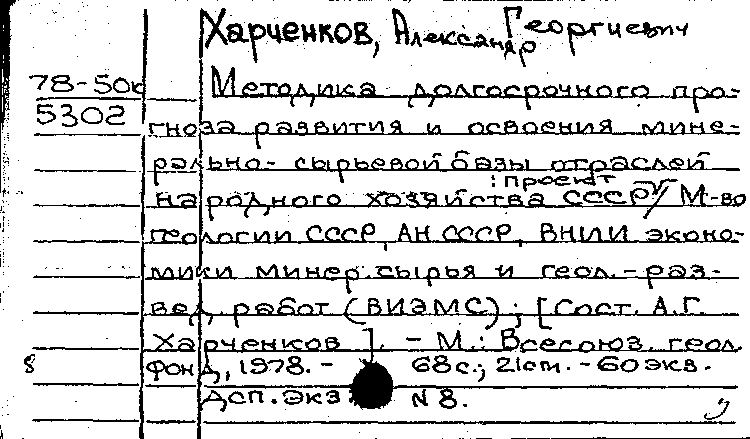 Харченков, Александр Георгиевич
78-50к
5302
Методика долгосрочного про-
гноза развития и освоения мине-
рально-сырьевой базы отраслей
народного хозяйства СССР : проект // М-во
геологии СССР, АН СССР, ВНИИ эконо-
мики минер. сырья и геол.-раз-
вед. работ (ВИЭМС) ; [Сост. А.Г.
Харченков]. - М.: Всесоюз. геол.
8 фонд, 1978. - 68с.; 21см. - 60 экз.
Дсп. экз. N 8.